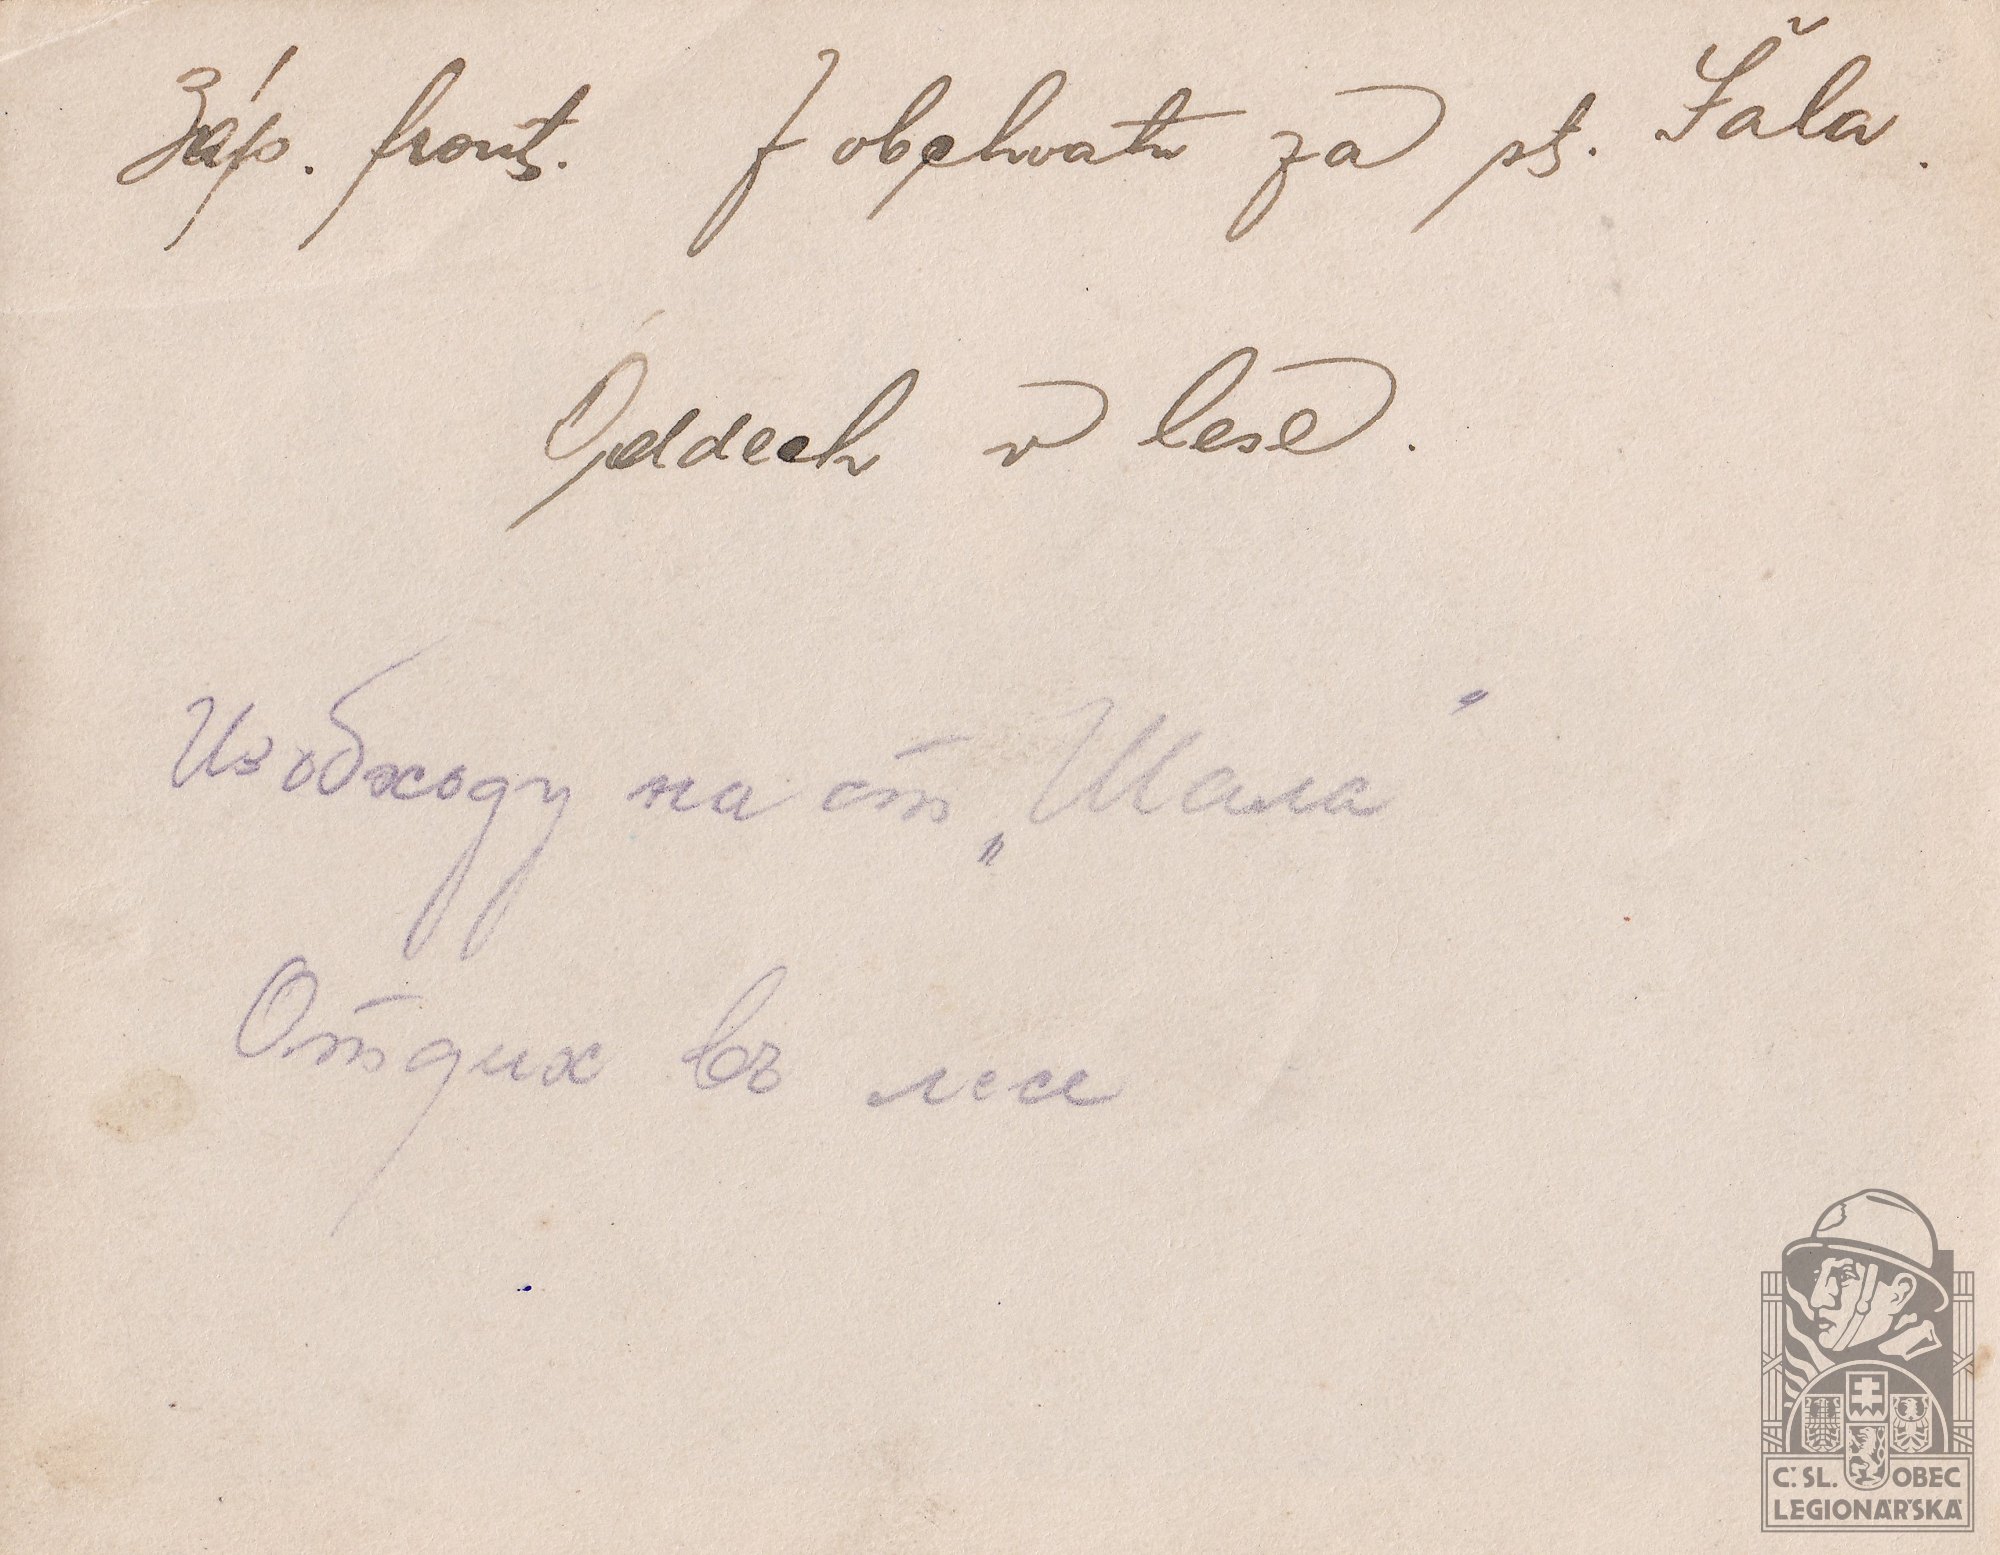 Záp. front. Z obchvatu za st. Šala.
Oddech v lese.
Из обходу на ст „Шала"
Отдих въ лесе
Č.SL. OBEC
LEGIONÁŘSKÁ